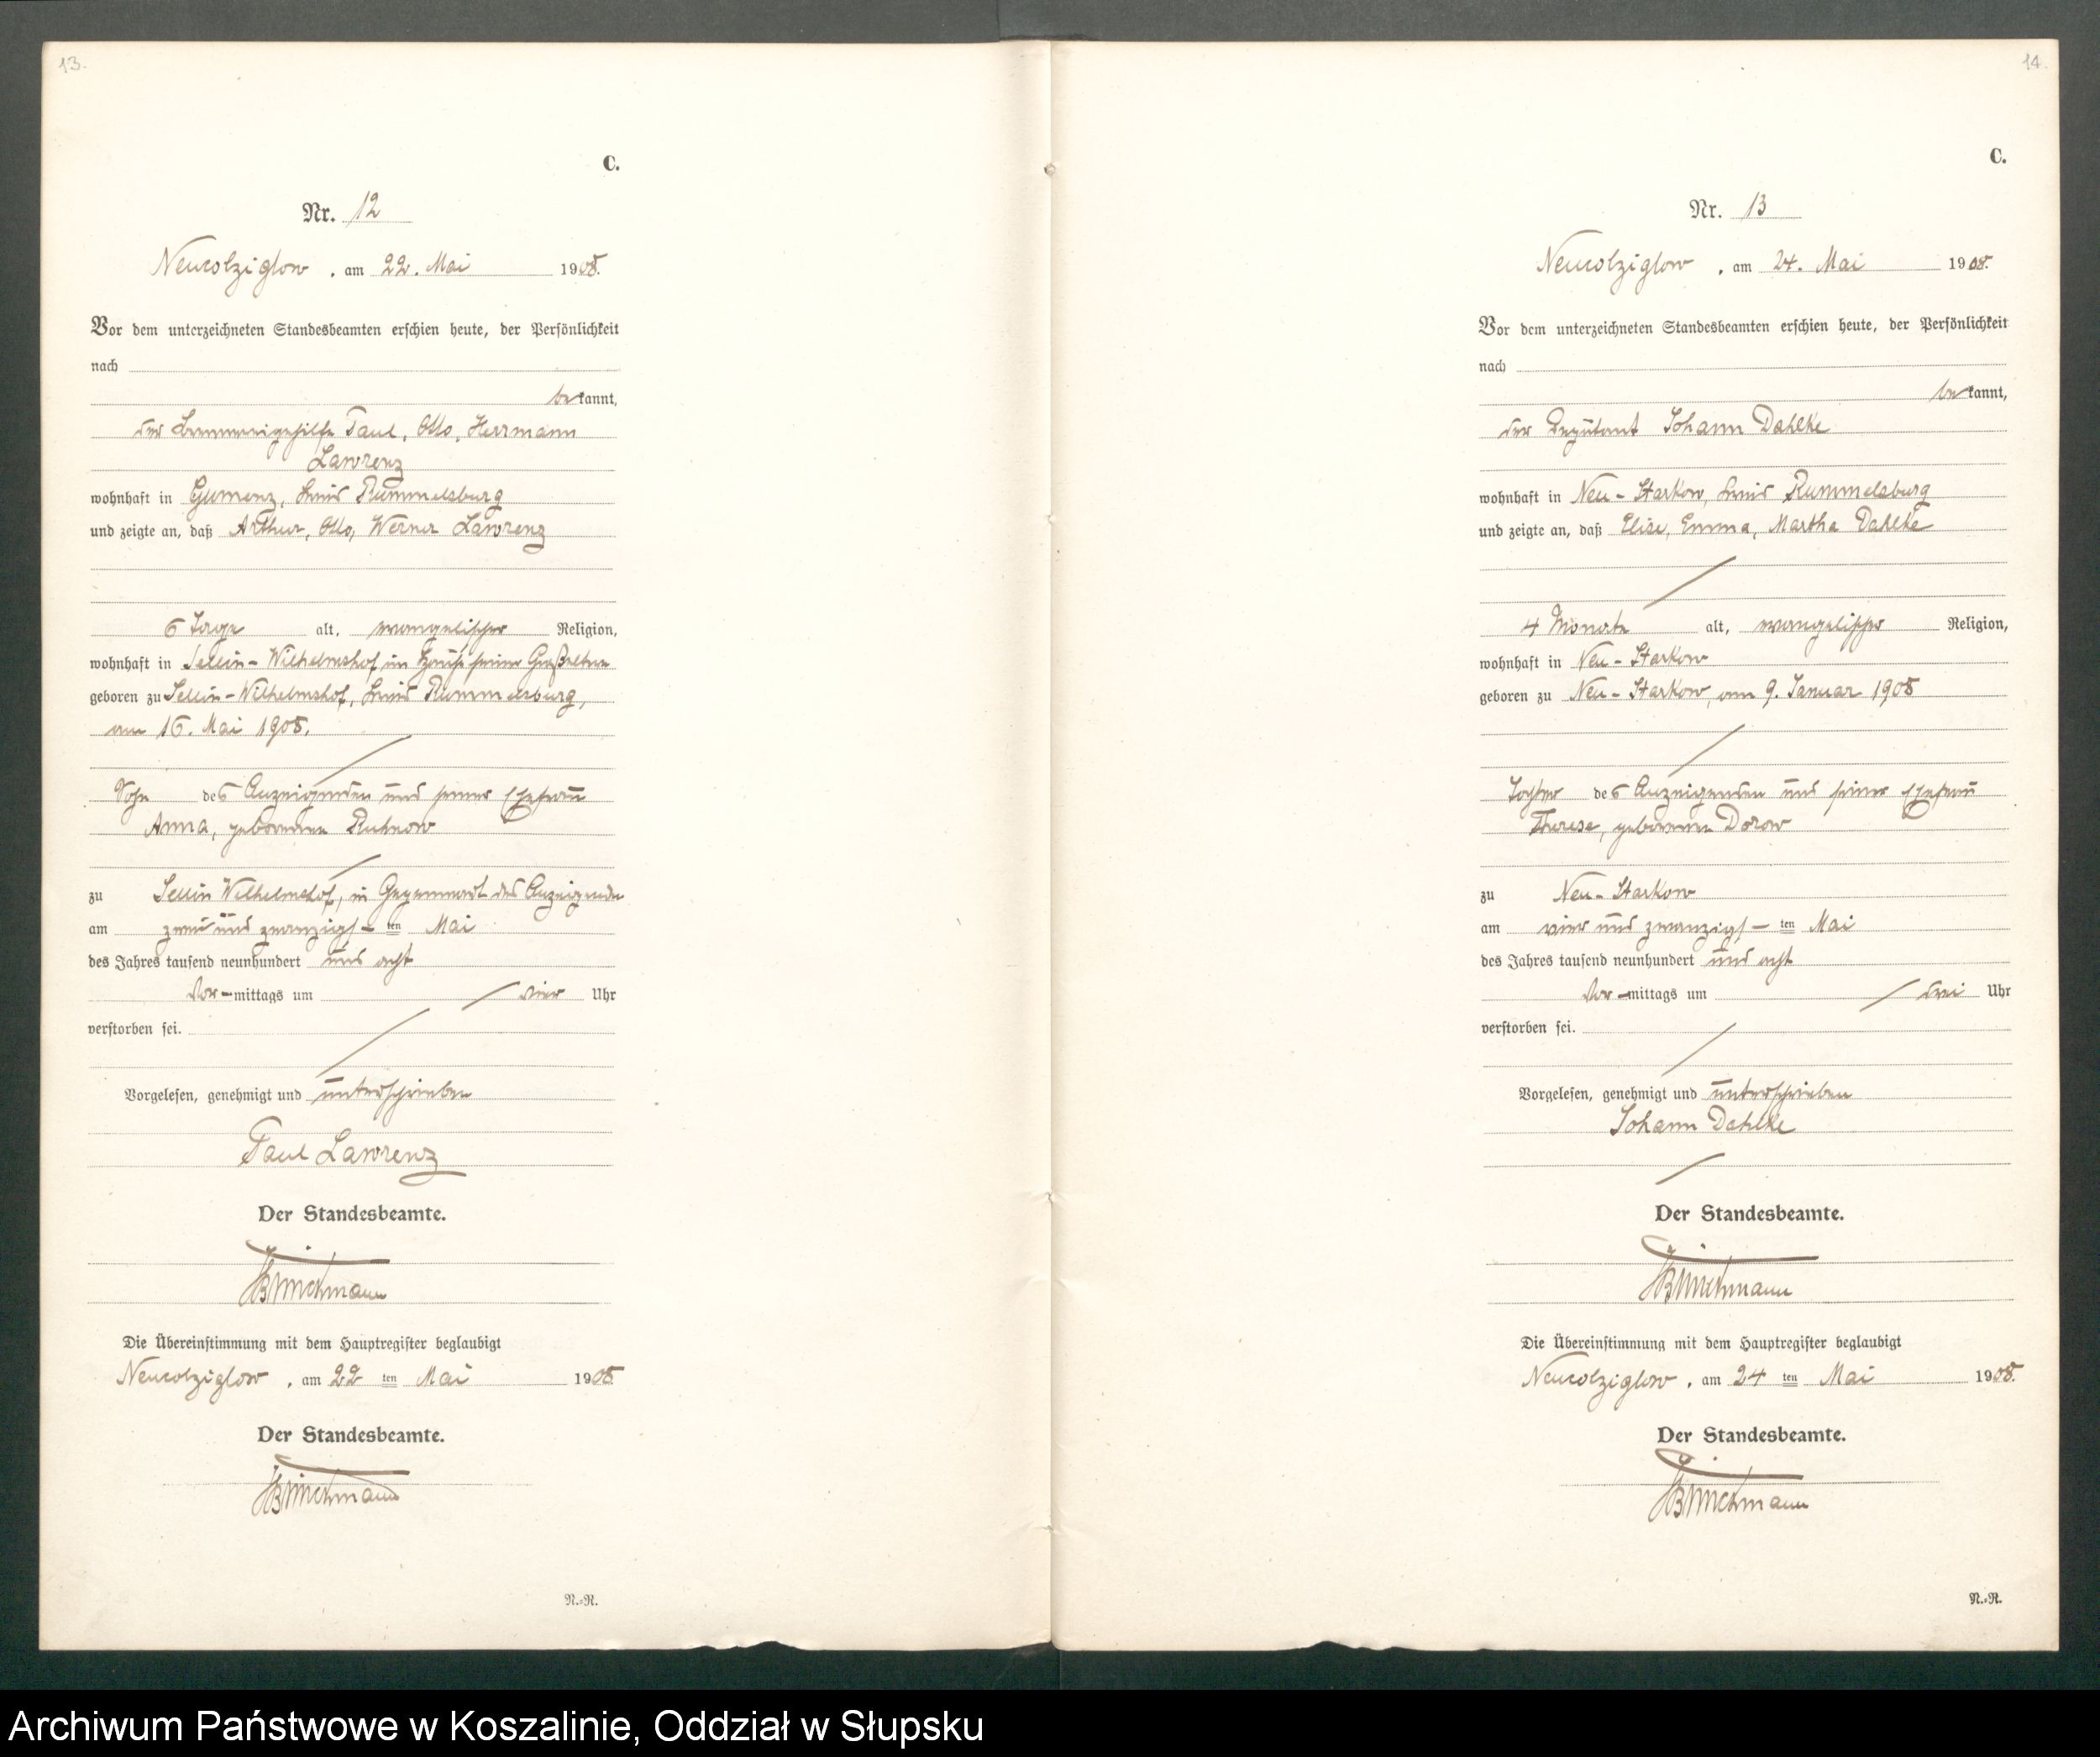 13.
C.
Nr. 12
Neukolziglow, am 22. Mai 1908.
Vor dem unterzeichneten Standesbeamten erschien heute, der Persönlichkeit
nach
bekannt,
der Brennereigehilfe Paul, Otto, Herrmann
Lawrenz
wohnhaft in Gumenz, Kreis Rummelsburg
und zeigte an, daß Arthur, Otto, Werner Lawrenz
6 Tage alt, evangelischer Religion,
wohnhaft in Sellin-Wilhelmshof im Hause seiner Großeltern
geboren zu Sellin-Wilhelmshof, Kreis Rummelsburg,
am 16. Mai 1908.
Sohn des Anzeigenden und seiner Ehefrau
Anna, geborenen Ruhnow
zu Sellin Wilhelmshof, in Gegenwart des Anzeigenden
am zwei und zwanzigsten Mai
des Jahres tausend neunhundert und acht
Vor-mittags um vier Uhr
verstorben sei.
Vorgelesen, genehmigt und unterschrieben
Paul Lawrenz
Der Standesbeamte.
Die Übereinstimmung mit dem Hauptregister beglaubigt
Neukolziglow, am 22 ten Mai 1908
Der Standesbeamte.
N.-R.
14.
C.
Nr. 13
Neukolziglow, am 24. Mai 1908.
Vor dem unterzeichneten Standesbeamten erschien heute, der Persönlichkeit
nach
bekannt,
der Deputant Johann Dahlke
wohnhaft in Neu-Starkow, Kreis Rummelsburg
und zeigte an, daß Elise, Emma, Martha Dahlke
4 Monate alt, evangelischer Religion,
wohnhaft in Neu-Starkow
geboren zu Neu-Starkow, am 9. Januar 1908
Tochter des Anzeigenden und seiner Ehefrau
Therese, geborenen Dorow
zu Neu-Starkow
am vier und zwanzigsten Mai
des Jahres tausend neunhundert und acht
Vor-mittags um drei Uhr
verstorben sei.
Vorgelesen, genehmigt und unterschrieben
Johann Dahlke
Der Standesbeamte.
Die Übereinstimmung mit dem Hauptregister beglaubigt
Neukolziglow, am 24 ten Mai 1908.
Der Standesbeamte.
N.-R.
Archiwum Państwowe w Koszalinie, Oddział w Słupsku